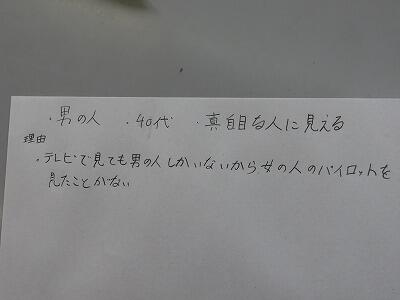 ・男の人 ・40代 ・真自目な人に見える
理由
・テレビで見ても男の人しかいないから女の人のパイロットを
見たことがない